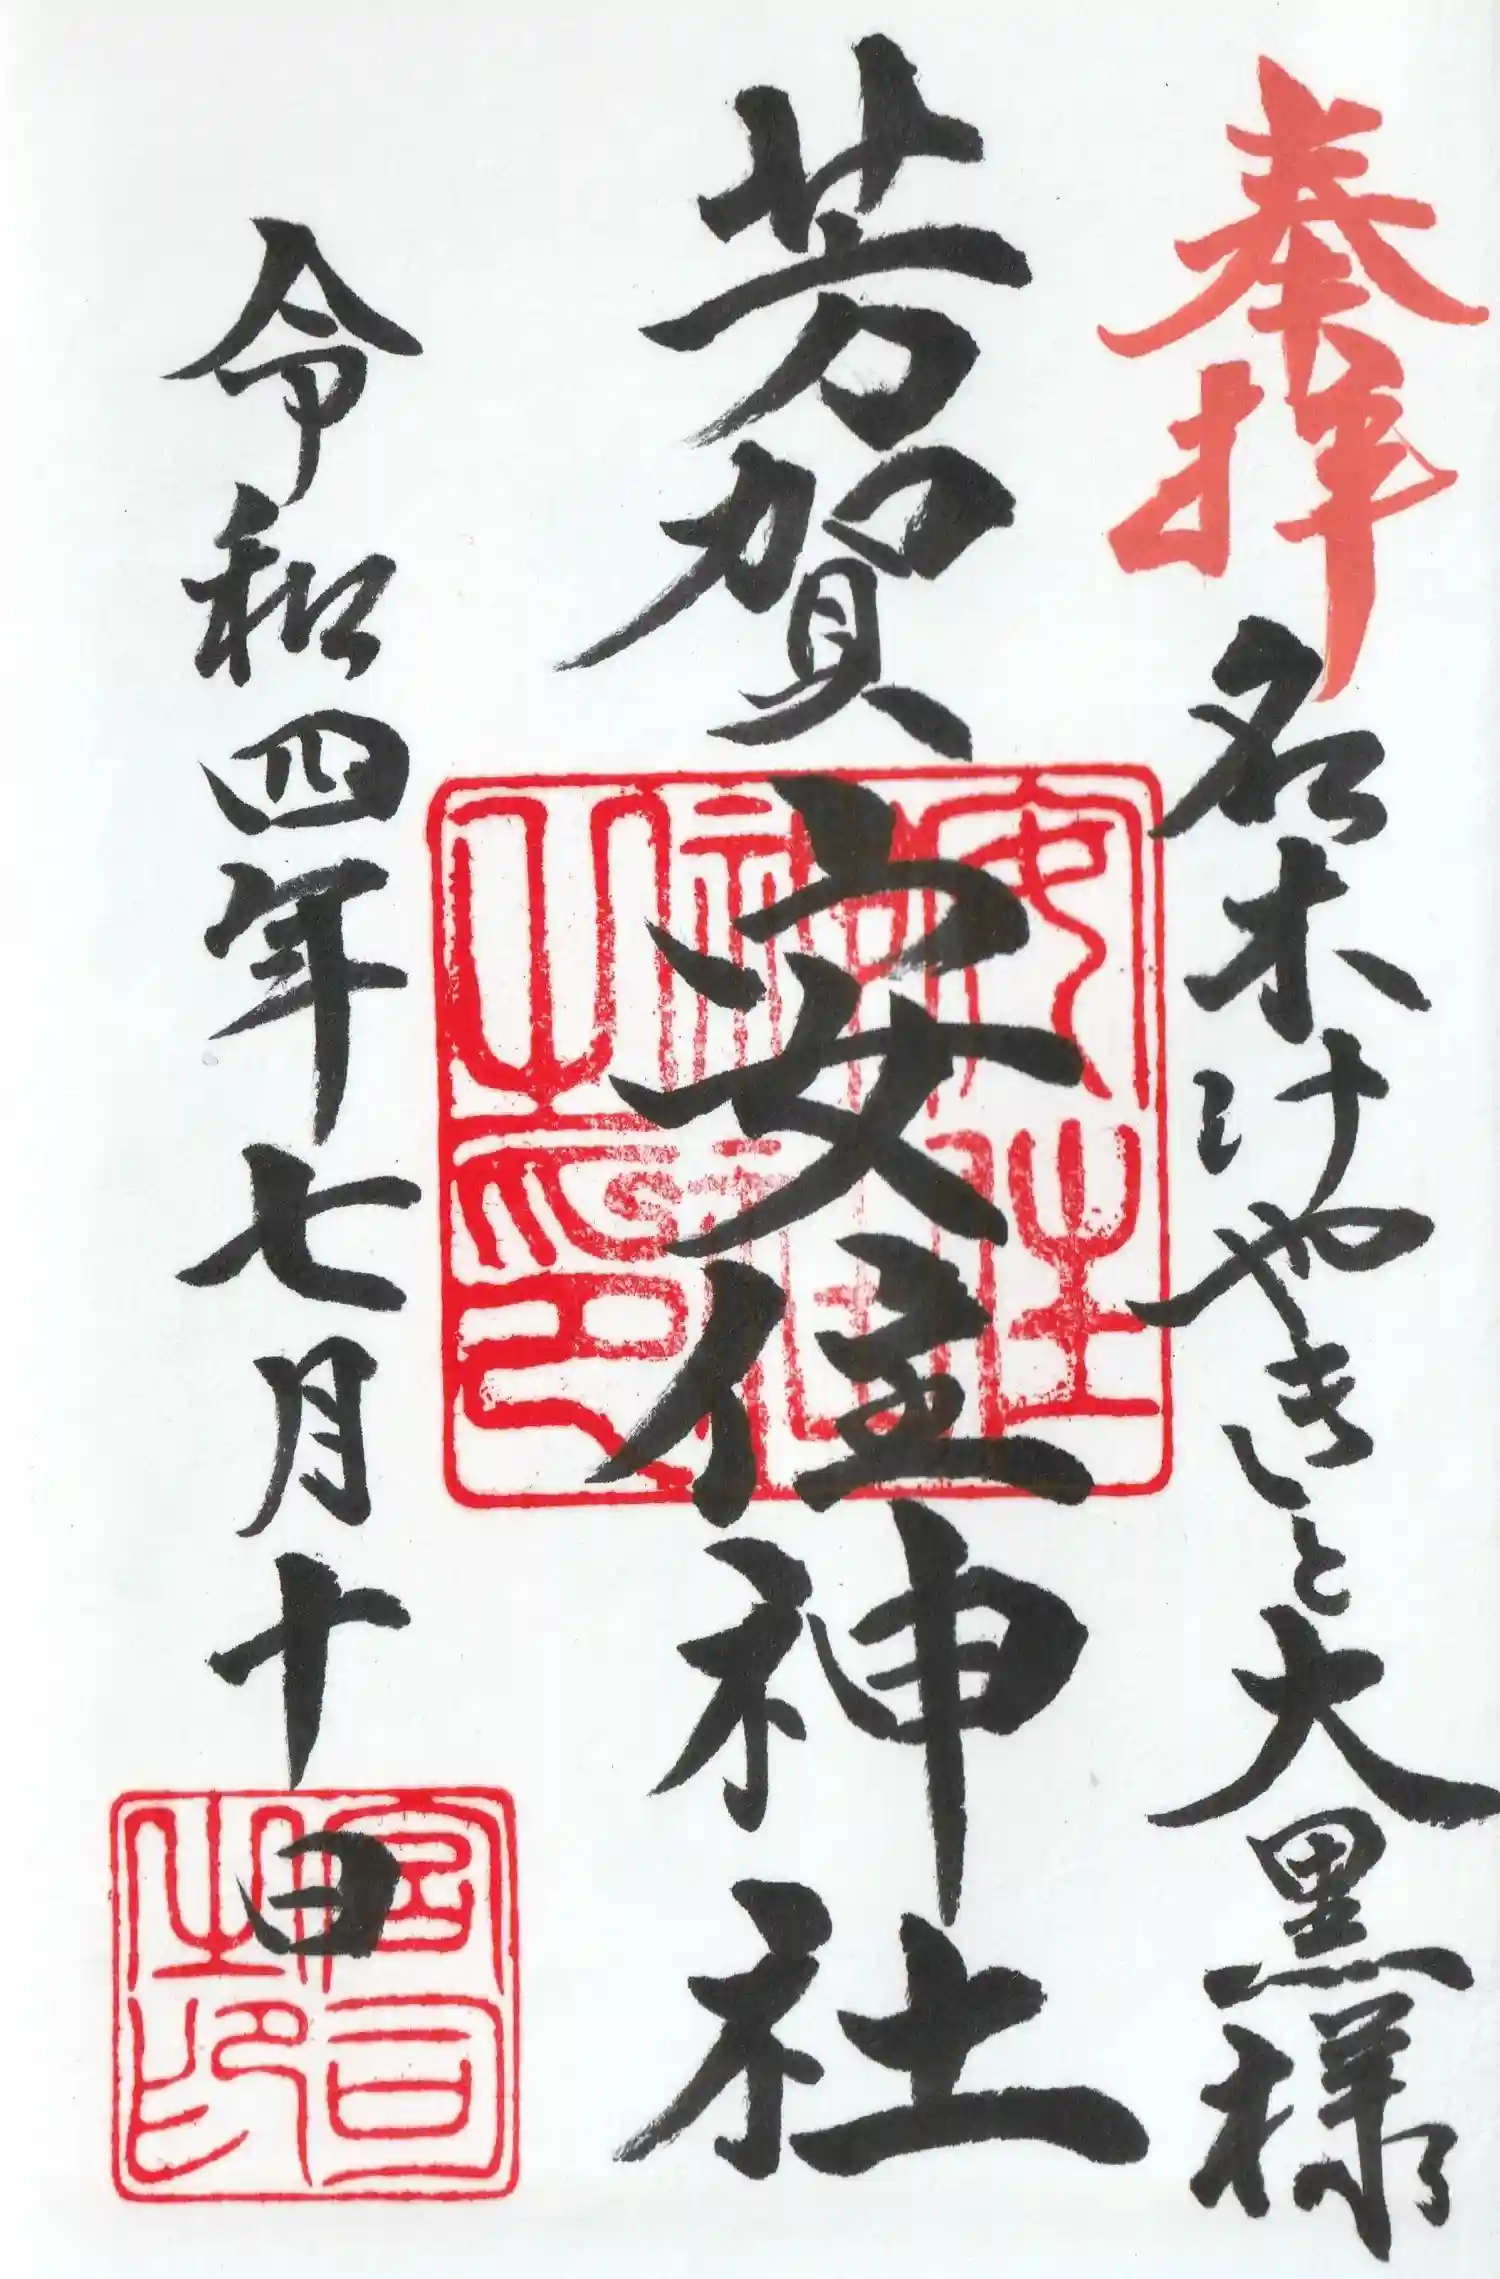 奉拝
名木けやきと大黒様
芳賀安住神社
安住神社之印
令和四年七月十日
宮司之印